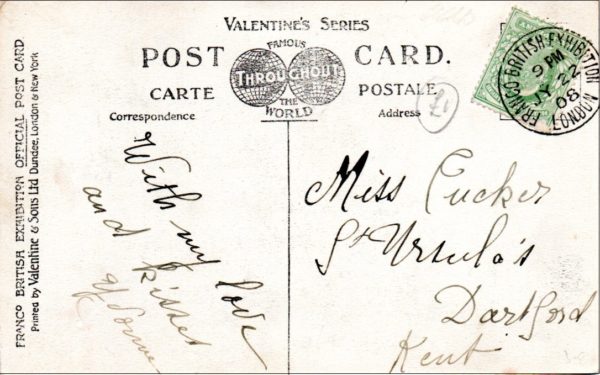 VALENTINE'S SERIES
POST CARD.
FAMOUS
THROUGHOUT
THE
WORLD
CARTE POSTALE
Correspondence
Address
£1
FRANCO BRITISH EXHIBITION
9 PM
JY 22
08
LONDON
FRANCO BRITISH EXHIBITION OFFICIAL POST CARD.
Printed by Valentine & Sons Ltd Dundee, London & New York
With my love
and kisses
Miss Tucker
St Ursula's
Dartford
Kent